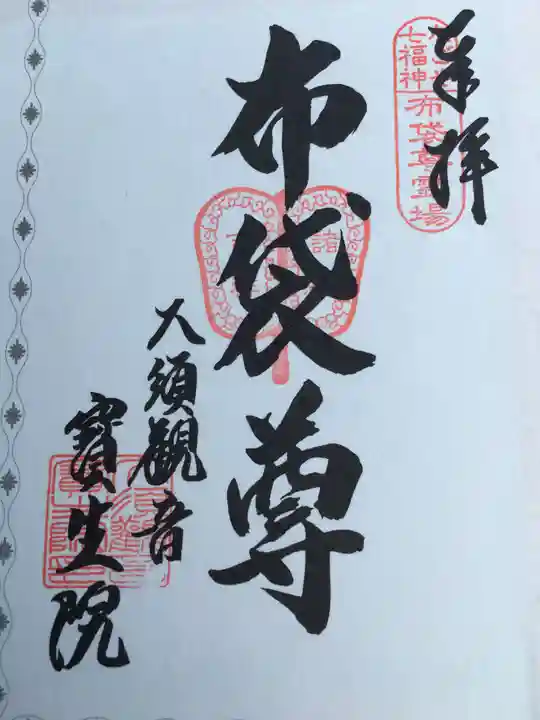 奉拝
七福神
布袋尊霊場
布袋尊
大須観音
寳生院